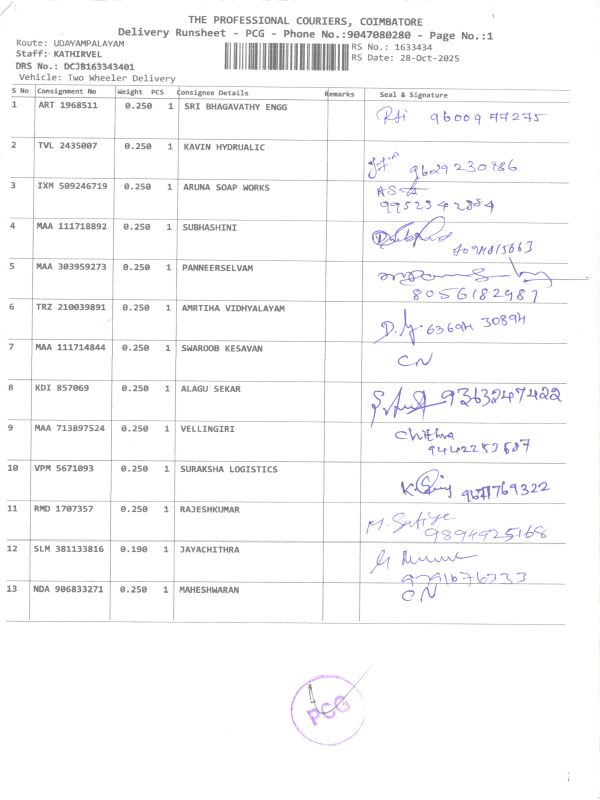 THE PROFESSIONAL COURIERS, COIMBATORE
Delivery Runsheet - PCG - Phone No.:9047080280 - Page No.:1
Route: UDAYAMPALAYAM RS No.: 1633434
Staff: KATHIRVEL RS Date: 28-Oct-2025
DRS No.: DCJB163343401
Vehicle: Two Wheeler Delivery
S No Consignment No Weight PCS Consignee Details Remarks Seal & Signature
1 ART 1968511 0.250 1 SRI BHAGAVATHY ENGG
96009 77275
2 TVL 2435007 0.250 1 KAVIN HYDRUALIC
9629230886
3 IXM 509246719 0.250 1 ARUNA SOAP WORKS
9952342884
4 MAA 111718892 0.250 1 SUBHASHINI
5 MAA 303959273 0.250 1 PANNEERSELVAM
8056182981
6 TRZ 210039891 0.250 1 AMRTIHA VIDHYALAYAM
63694 30894
7 MAA 111714844 0.250 1 SWAROOB KESAVAN
CN
8 KDI 857069 0.250 1 ALAGU SEKAR
9363247422
9 MAA 713897524 0.250 1 VELLINGIRI
Chithra
9442253687
10 VPM 5671093 0.250 1 SURAKSHA LOGISTICS
9677769322
11 RMD 1707357 0.250 1 RAJESHKUMAR
9894925168
12 SLM 381133816 0.190 1 JAYACHITHRA
13 NDA 906833271 0.250 1 MAHESHWARAN
CN
PCG